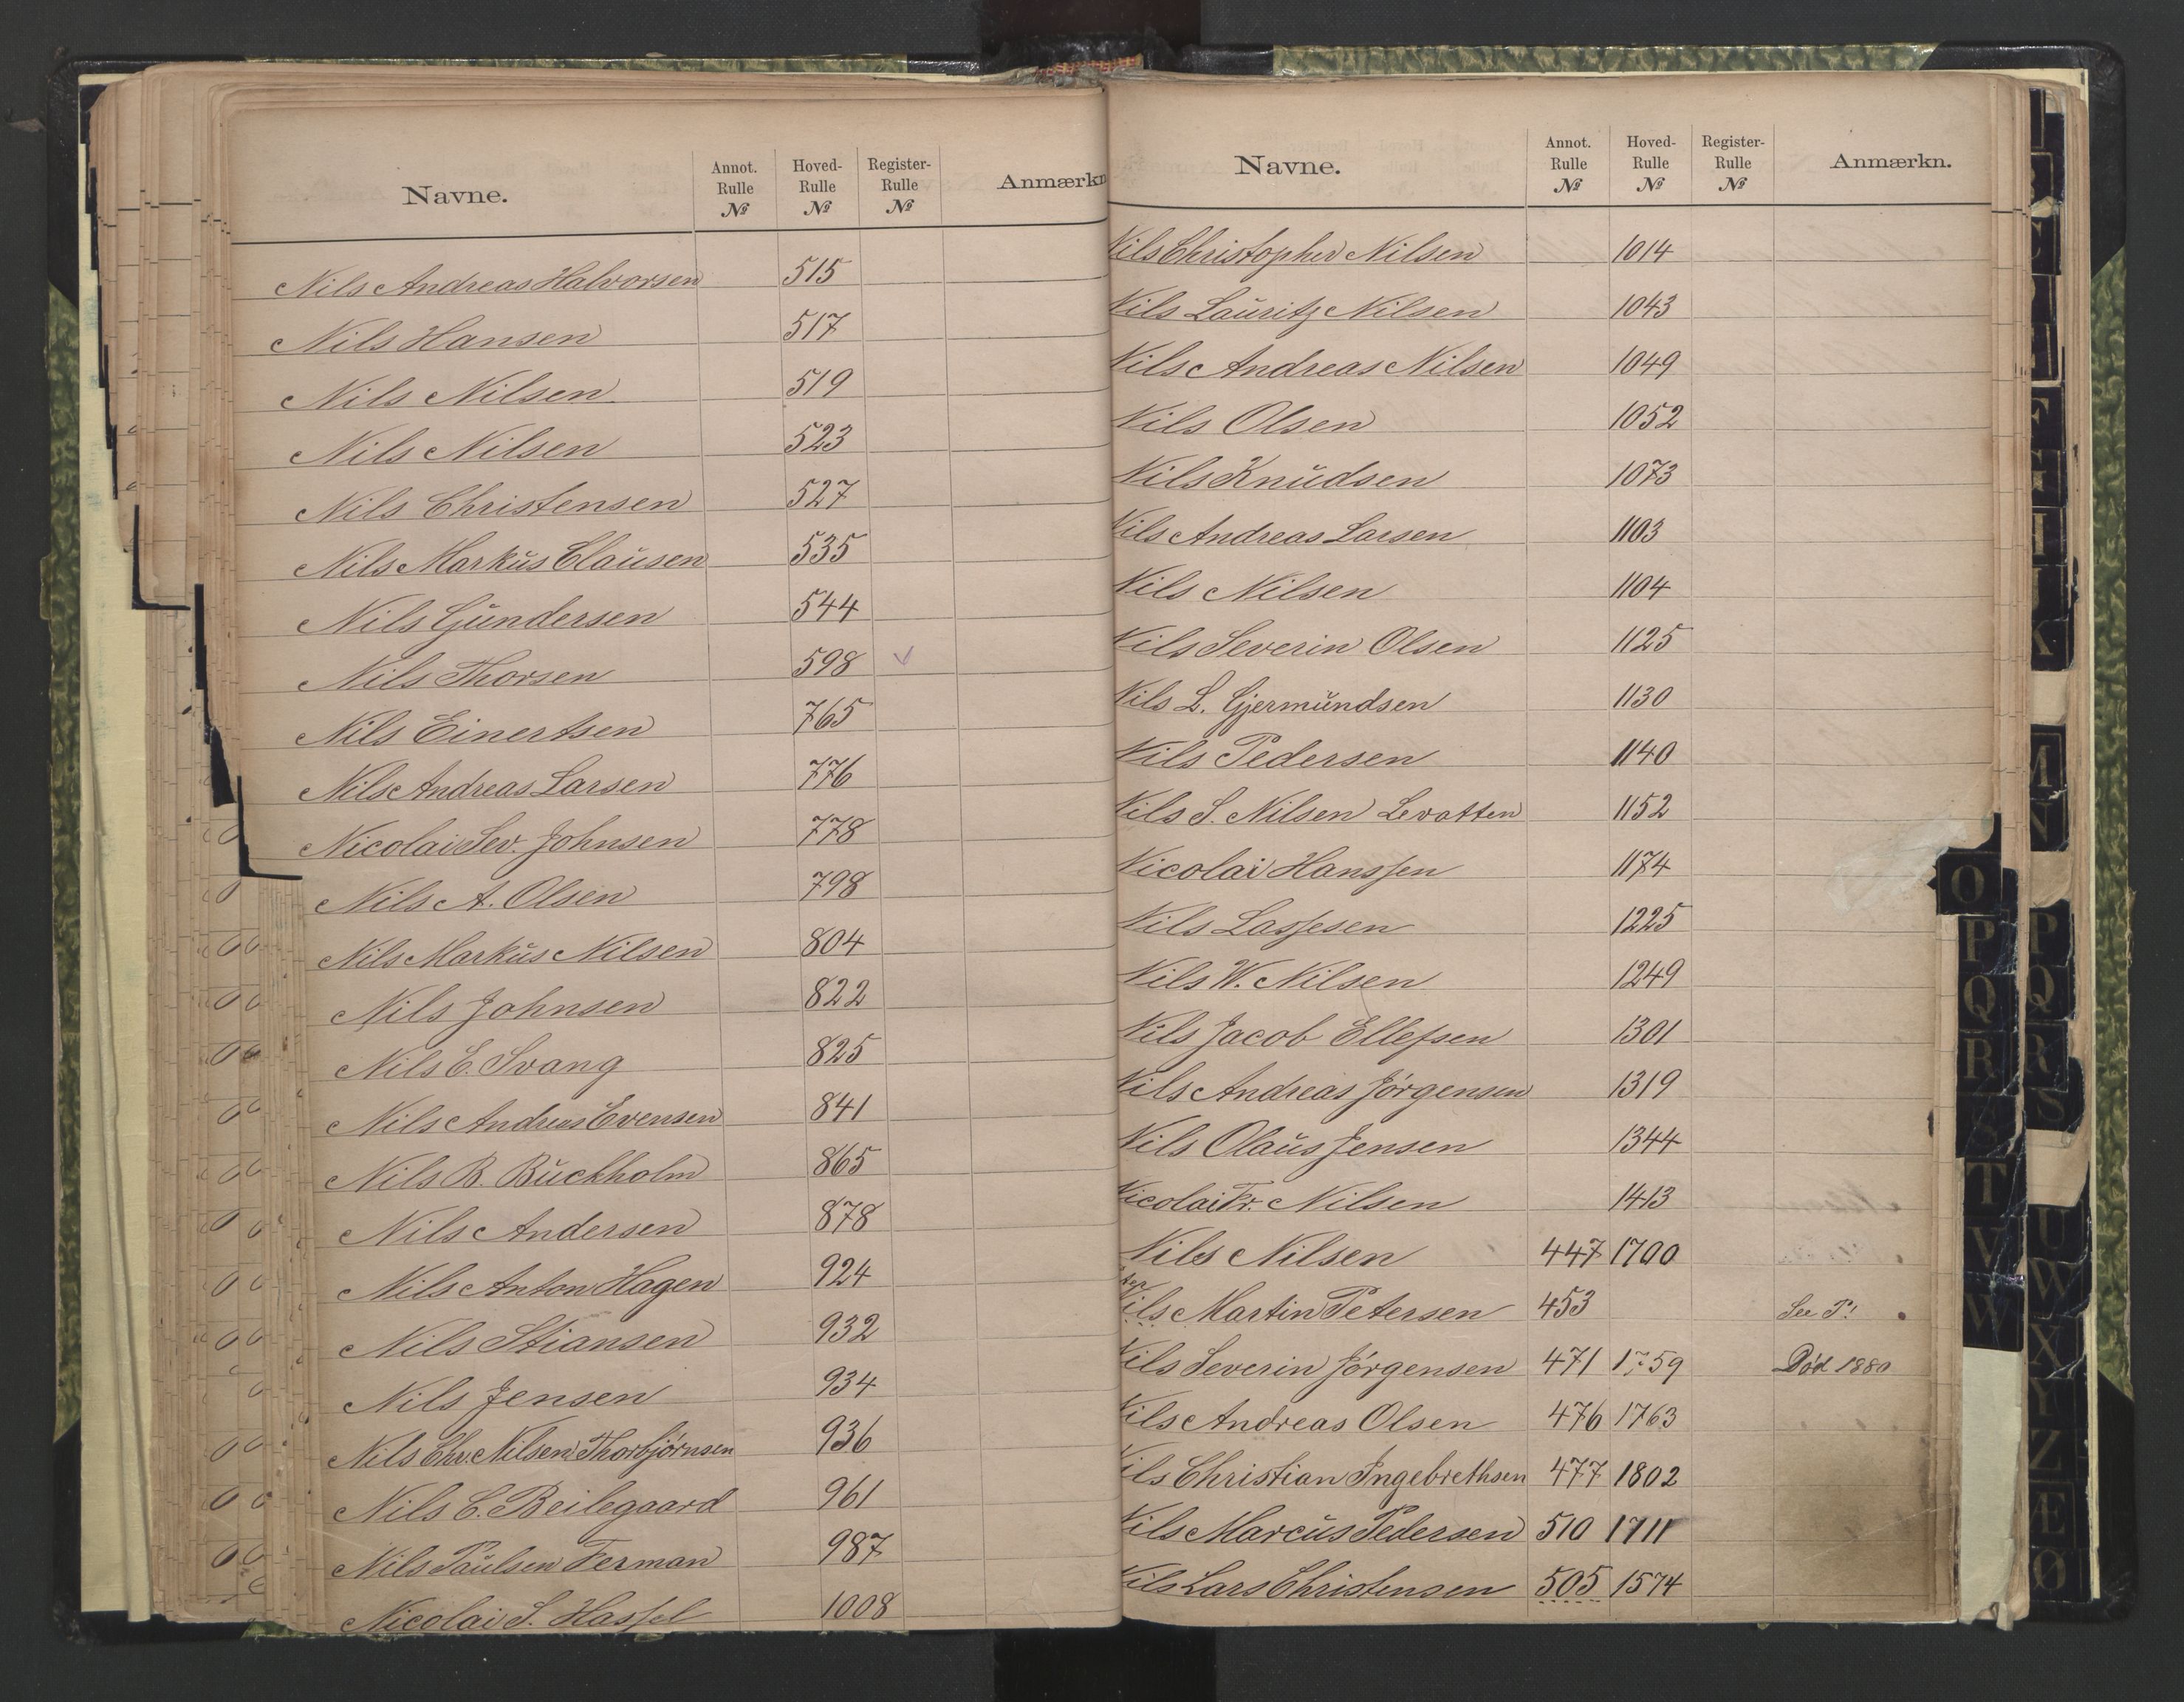 Navne. Annot. Rulle № Hoved-Rulle № Register-Rulle № Anmærkn
Nils Andreas Halvorsen 515
Nils Hansen 517
Nils Nilsen 519
Nils Nilsen 523
Nils Christensen 527
Nils Markus Clausen 535
Nils Gundersen 544
Nils Thorsen 598 ✓
Nils Einertsen 765
Nils Andreas Larsen 776
Nicolai Sev. Johnsen 778
Nils A. Olsen 798
Nils Markus Nilsen 804
Nils Johnsen 822
Nils E. Svang 825
Nils Andreas Evensen 841
Nils B. Buckholm 865
Nils Andersen 878
Nils Anton Hagen 924
Nils Stiansen 932
Nils Jensen 934
Nils Chr. Nilsen Thorbjörnsen 936
Nils C. Beilegaard 961
Nils Paulsen Ferman 987
Nicolai S. Hassel 1008
Navne. Annot. Rulle № Hoved-Rulle № Register-Rulle № Anmærkn.
Nils Christopher Nilsen 1014
Nils Lauritz Nilsen 1043
Nils Andreas Nilsen 1049
Nils Olsen 1052
Nils Knudsen 1073
Nils Andreas Larsen 1103
Nils Nilsen 1104
Nils Severin Olsen 1125
Nils L. Gjermundsen 1130
Nils Pedersen 1140
Nils S. Nilsen Levatten 1152
Nicolai Hanssen 1174
Nils Lassesen 1225
Nils W. Nilsen 1249
Nils Jacob Ellefsen 1301
Nils Andreas Jörgensen 1319
Nils Olaus Jensen 1344
Nicolai Fr. Nilsen 1413
Nils Nilsen 447 1700
Nils Martin Petersen 453 See P!
Nils Severin Jörgensen 471 1759 Död 1880
Nils Andreas Olsen 476 1763
Nils Christian Ingebrethsen 477 1802
Nils Marcus Pedersen 510 1711
Nils Lars Christensen 505 1574
O
P
Q
R
S
T
V
W
P
Q
R
S
U
W
X
Y
Z
Æ
Ø